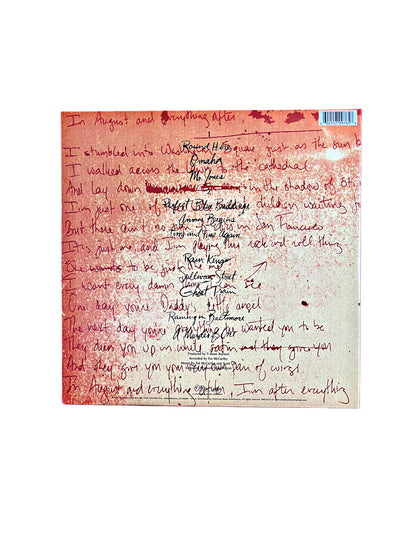 In August and everything After,
I stumbled into Washington Square just as the sun b
Round Here
Omaha
I walked across the the cathedral
Mr. Jones
And lay down in the shadow of St.
Perfect Blue Buildings
I'm just one of children waiting
Anna Begins
But there ain't no in San Francisco
Time and Time Again
It's just me and playing this rock and roll thing
Rain King
She wants to be just like me
Sullivan Street
I want every damn thing
Ghost Train
One day you're Daddy's little angel
Raining in Baltimore
The next day you're wanted you to be
A Murder of One
They dress you up in white satin and they give you
Produced by T-Bone Burnett
And they give you your own pair of wings
In August and everything after, I'm after everything